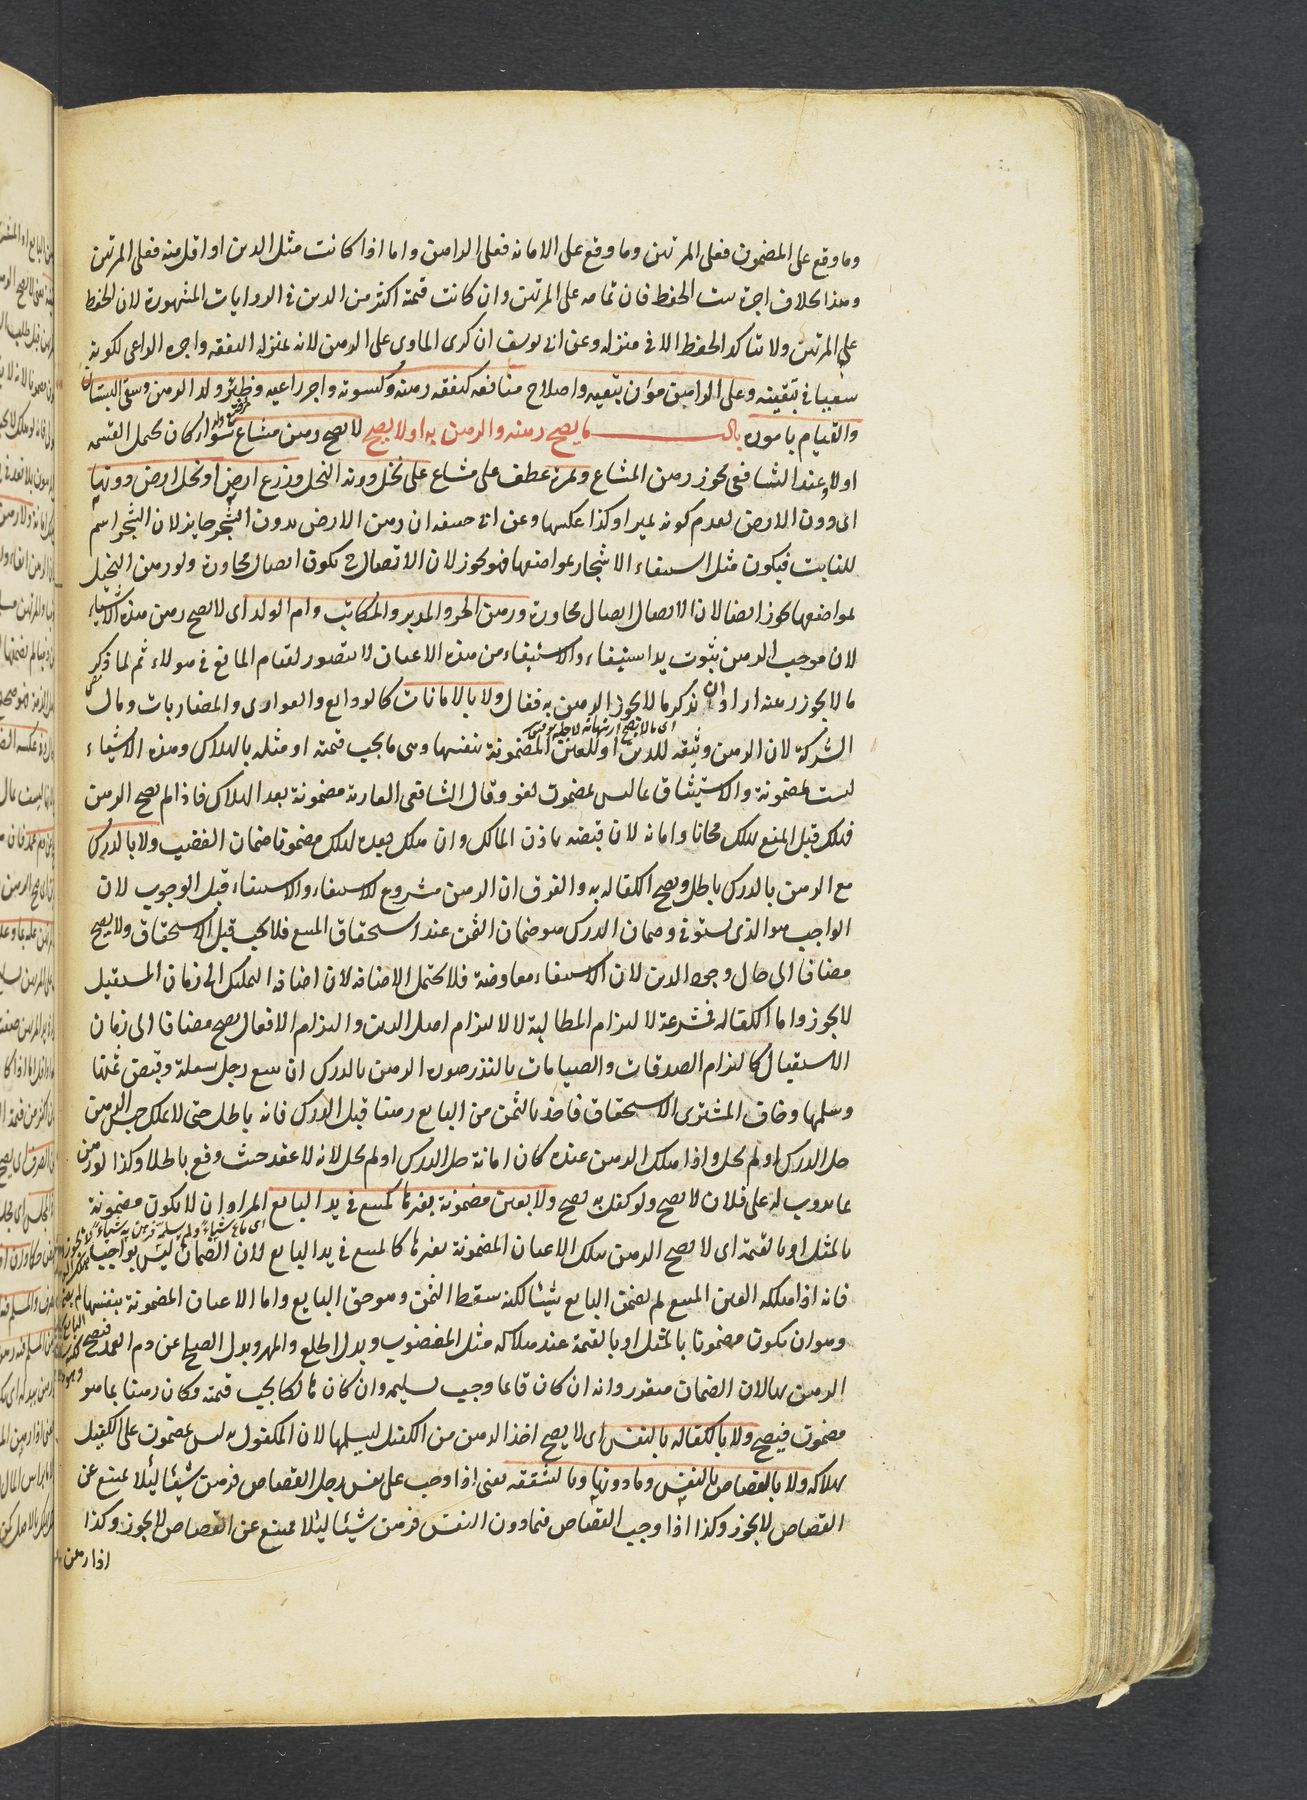 وما وقع على المضمون فعلى المرتهن وما وقع على الامانه فعلى الراهن واما اذا كانت مثل الدين او اقل منه فعلى المرتهن
وهذا بخلاف اجرة بيت الحفظ فان تمامه على المرتهن وان كانت قيمته اكثر من الدين فى الروايات المشهورة لان الحفظ
على المرتهن ولا يتأكد الحفظ الا فى منزله وعن ابى يوسف ان كرى الماوى على الرهن لانه بمنزله النفقه واجره الراعى لكونه
سعيا فى تبقيته وعلى الراهن مؤن بتقيه واصلاح منافعه كنفقه رهنه وكسوته واجر راعيه وظئر ولد الرهن وسقى البستان
والقيام باموره باب ما يصح رهنه والرهن به او لا يصح لا يصح رهن مشاع سواء كان يحمل القسمه
اولا وعند الشافعى يجوز رهن المشاع وثمرة عطف على مشاع على نخل دونه النخل وزرع ارض او نخل ارض دونها
اى دون الارض لعدم كونه مميزا وكذا عكسها وعن ابى حنيفه ان رهن الارض بدون الشجر جايز لان الشجر اسم
للنابت فيكون مثل استثناء الاشجار بمواضعها فهو يجوز لان الاتصال ح يكون اتصال مجاورة ولو رهن النخيل
بمواضعها يجوز ايضا لان الاتصال اتصال مجاورة ورهن الحر والمدبر والمكاتب وام الولد اى لا يصح رهن هذه الاشياء
لان موجب الرهن ثبوت يد استيفاء والاستيفاء من هذه الاعيان لا يتصور لقيام المانع فى هولاء ثم لما ذكر
ما لا يجوز رهنه اراد ان يذكر ما لا يجوز الرهن به فقال ولا بالامانات كالودايع والعوارى والمضاربات ومال
الشركة لان الرهن وثيقه للدين او للعين المضمونة بنفسها وهى ما يجب قيمته او مثله بالهلاك وهذه الاشياء
ليست بمضمونة والاستيثاق بما ليس بمضمون لغو وقال الشافعى العارية مضمونة بعد الهلاك فاذا لم يصح الرهن
فهلك قبل المنع يهلك مجانا وامانه لان قبضه باذن المالك وان هلك بعده يهلك مضمونا ضمان الغصب ولا بالدرك
مع الرهن بالدرك باطل ويصح الكفاله به والفرق ان الرهن مشروع للاستيفاء والاستيفاء قبل الوجوب لان
الواجب هو الذى يستوفى وضمان الدرك هو ضمان الثمن عند استحقاق المبيع فلا يجب قبل الاستحقاق ولا يصح
مضافا الى حال وجود الدين لان الاستيفاء معاوضة فلا يحتمل الاضافه لان اضافه التمليك الى زمان المستقبل
لا يجوز واما الكفاله فمشرعة لالتزام المطالبة لا لالتزام اصل الدين والتزام الافعال يصح مضافا الى زمان
الاستقبال كالتزام الصدقات والصيامات بالنذر صورة الرهن بالدرك ان يبيع رجل سلعة وقبض ثمنها
وسلمها وخاف المشترى الاستحقاق فاخذ بالثمن من البايع رهنا قبل الدرك فانه باطل حتى لا يملك حبس الرهن
حل الدرك او لم يحل واذا هلك الرهن عنده كان امانة حل الدرك او لم يحل لانه لا عقد حيث وقع باطلا وكذا لو رهن
بما يذوب له على فلان لا يصح ولو كفل به يصح ولا بعين مضمونة بغيرها كمبيع فى يد البايع المراد ان لا يكون مضمونة
بالمثل او بالقيمة اى لا يصح الرهن بتلك الاعيان المضمونة بغيرها كالمبيع فى يد البايع لان الضمان ليس بواجب
فانه اذا هلك العين المبيع لم يضمن البايع شيئا لكنه سقط الثمن وهو حق البايع واما الاعيان المضمونة بنفسها
وهو ان يكون مضمونا بالمثل او بالقيمة عند هلاكه مثل المغصوب وبدل الخلع والمهر وبدل الصلح عن دم العمد فيصح
الرهن بها لان الضمان متقرر وانه ان كان قائما وجب تسليمه وان كان هالكا يجب قيمته وكان رهنا بما هو
مضمون فيصح ولا بالكفاله بالنفس اى لا يصح اخذ الرهن من الكفيل ليسلمها لان المكفول به ليس بمضمون على الكفيل
بهلاكه ولا بالقصاص بالنفس وما دونها وبالشفعه يعنى اذا وجب على نفس رجل القصاص فرهن شيئا لئلا يمتنع عن
القصاص لا يجوز وكذا اذا وجب القصاص فيما دون النفس فرهن شيئا لئلا يمتنع عن القصاص لا يجوز وكذا
اذا رهن